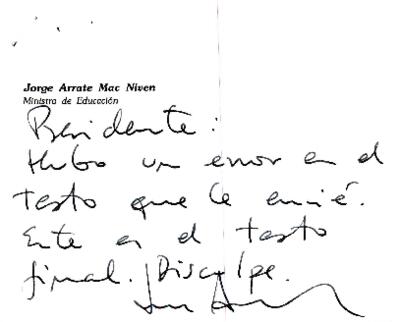 Jorge Arrate Mac Niven
Ministro de Educación
Presidente:
Hubo un error en el
texto que le envié.
Este es el texto
final. Disculpe.